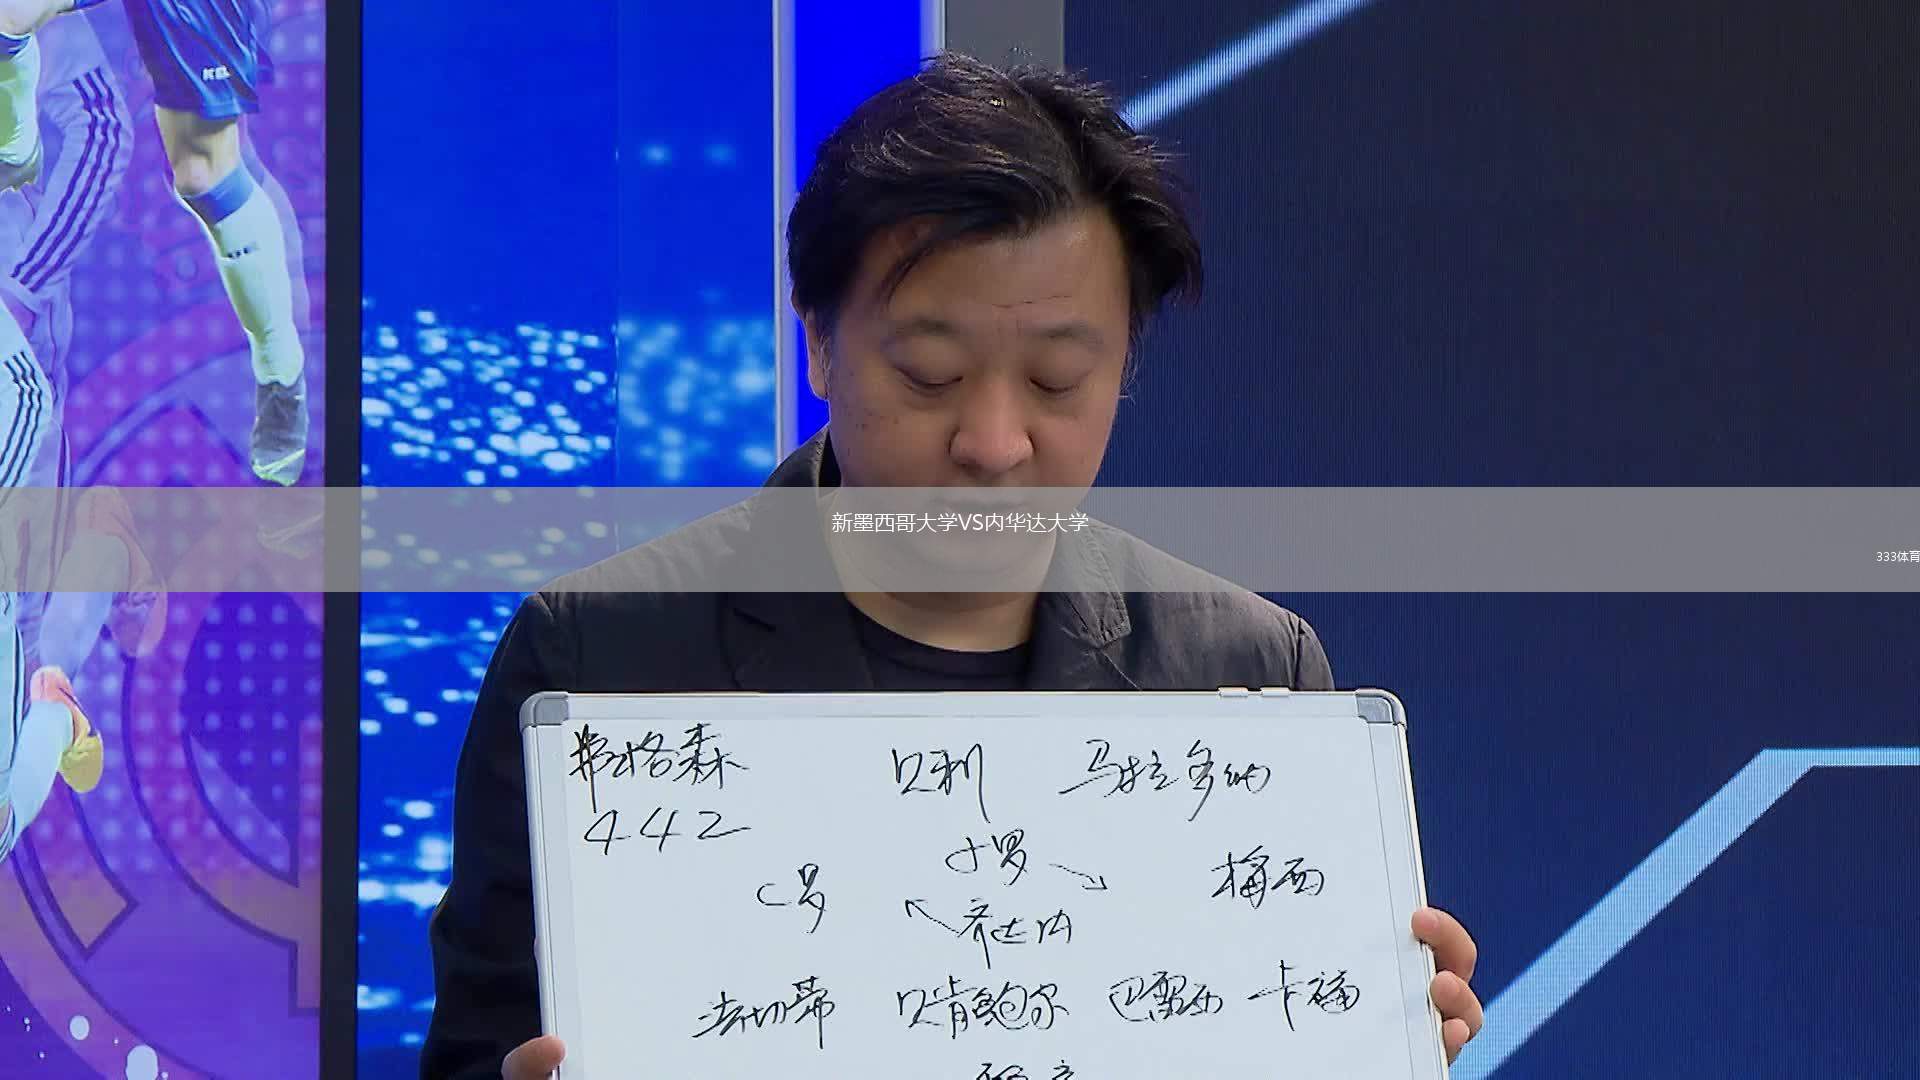 新墨西哥大学VS内华达大学
333体育
弗格森 贝利 马拉多纳
442
小罗
C罗 梅西
齐达内
法切蒂 贝肯鲍尔 巴雷西 卡福